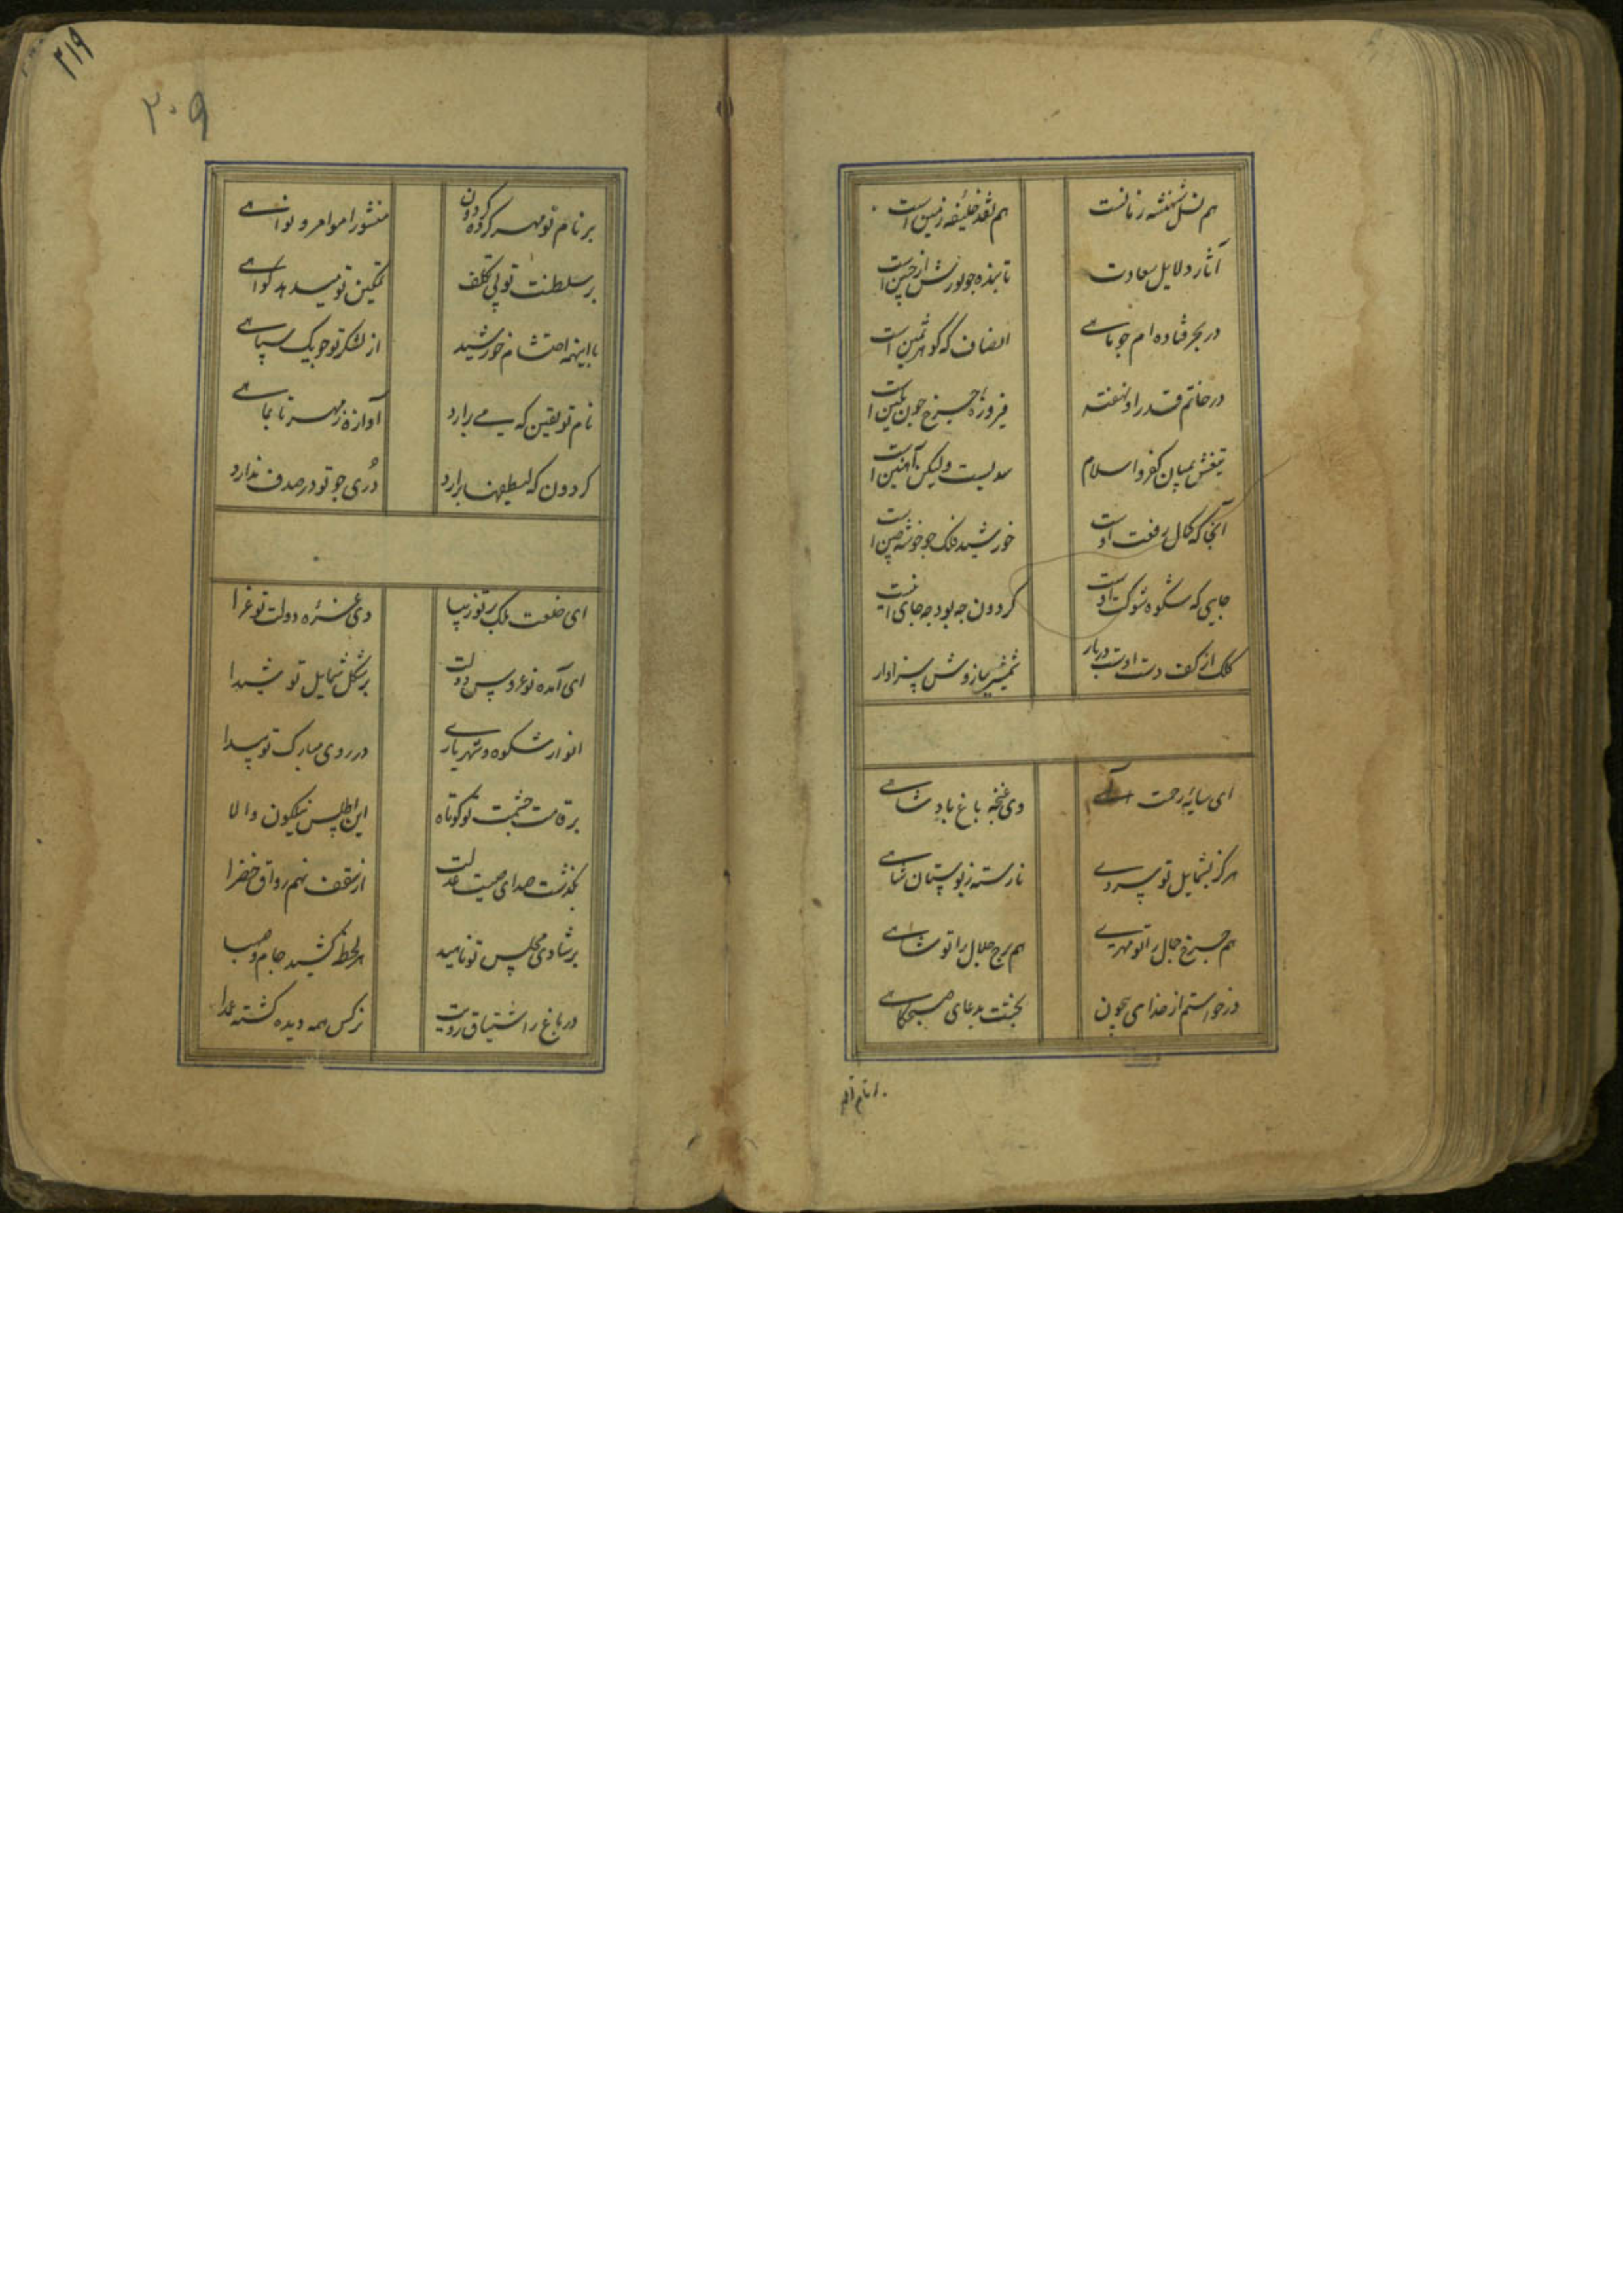 هم نسل شهنشه زمانست
هم نقد خلیفه زمین است
آثار دلایل سعادت
تابنده چو نورش از جبین است
در بحر فتاده ام چو ماهی
انصاف که گوهر ثمین است
در خاتم قدر او نهفته
فیروزه چرخ چون نکین است
تیغش بمیان کفر و اسلام
سدیست ولیکن آهنین است
آنجا که کمال رفعت اوست
خورشید فلک چو خوشه چین است
جایی که شکوه شوکت اوست
کردون چه بود چه جای اینست
کلک از کف دست اوست دربار
شمشیر ببازوش سزاوار
ای سایهٔ رحمت الهی
وی غنچه باغ پادشاهی
هرکز بشمایل تو سروی
نارسته ز بوستان شاهی
هم چرخ جمال را تو مهری
هم برج جلال را تو شاهی
درخواستم از خدای بیچون
بختت بدعای صبحکاهی
۲۱۹
۲۰۹
بر نام تو مهر کرده کردون
منشور اوامر و نواهی
بر سلطنت تو بی تکلف
تمکین تو میدهد کواهی
با اینهمه احتشام خورشید
از لشکر تو چو یک سپاهی
نام تو یقین که می برارد
آوازه ز مهر تا بماهی
کردون که لطیفها برارد
دُری چو تو در صدف ندارد
ای خلعت ملک بر تو زیبا
وی غره دولت تو غرا
ای آمده نوعروس دولت
بر شکل شمایل تو شیدا
انوار شکوه و شهریاری
در روی مبارک تو پیدا
بر قامت حشمت تو کوتاه
این اطلس نیلکون والا
بکذشت صدای صیت عدلت
از سقف نهم رواق خضرا
بر شادی مجلس تو ناهید
هر لحظه کشید جام صهبا
در باغ ز اشتیاق رویت
نرکس همه دیده کشته عمدا